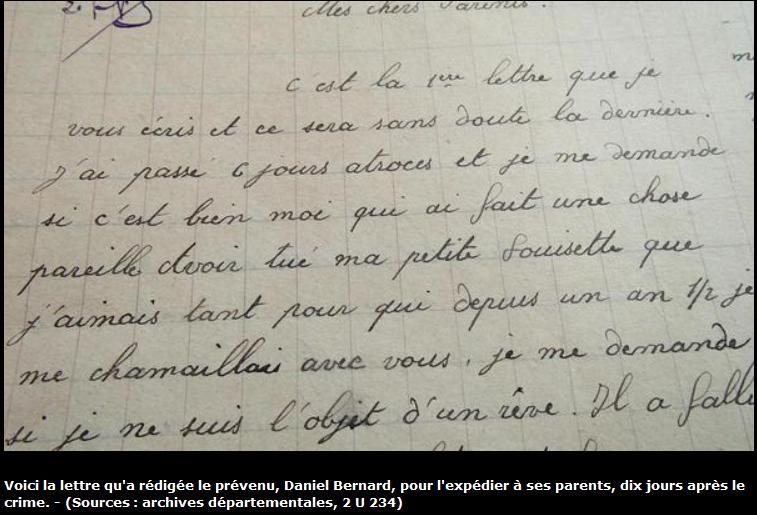 Mes chers Parents.
c'est la 1ere lettre que je
vous écris et ce sera sans doute la dernière.
J'ai passé 6 jours atroces et je me demande
si c'est bien moi qui ai fait une chose
pareille d'avoir tué ma petite Louisette que
j'aimais tant pour qui depuis un an 1/2 je
me chamaillais avec vous, je me demande
si je ne suis l'objet d'un rêve. Il a
Voici la lettre qu'a rédigée le prévenu, Daniel Bernard, pour l'expédier à ses parents, dix jours après le
crime. - (Sources : archives départementales, 2 U 234)